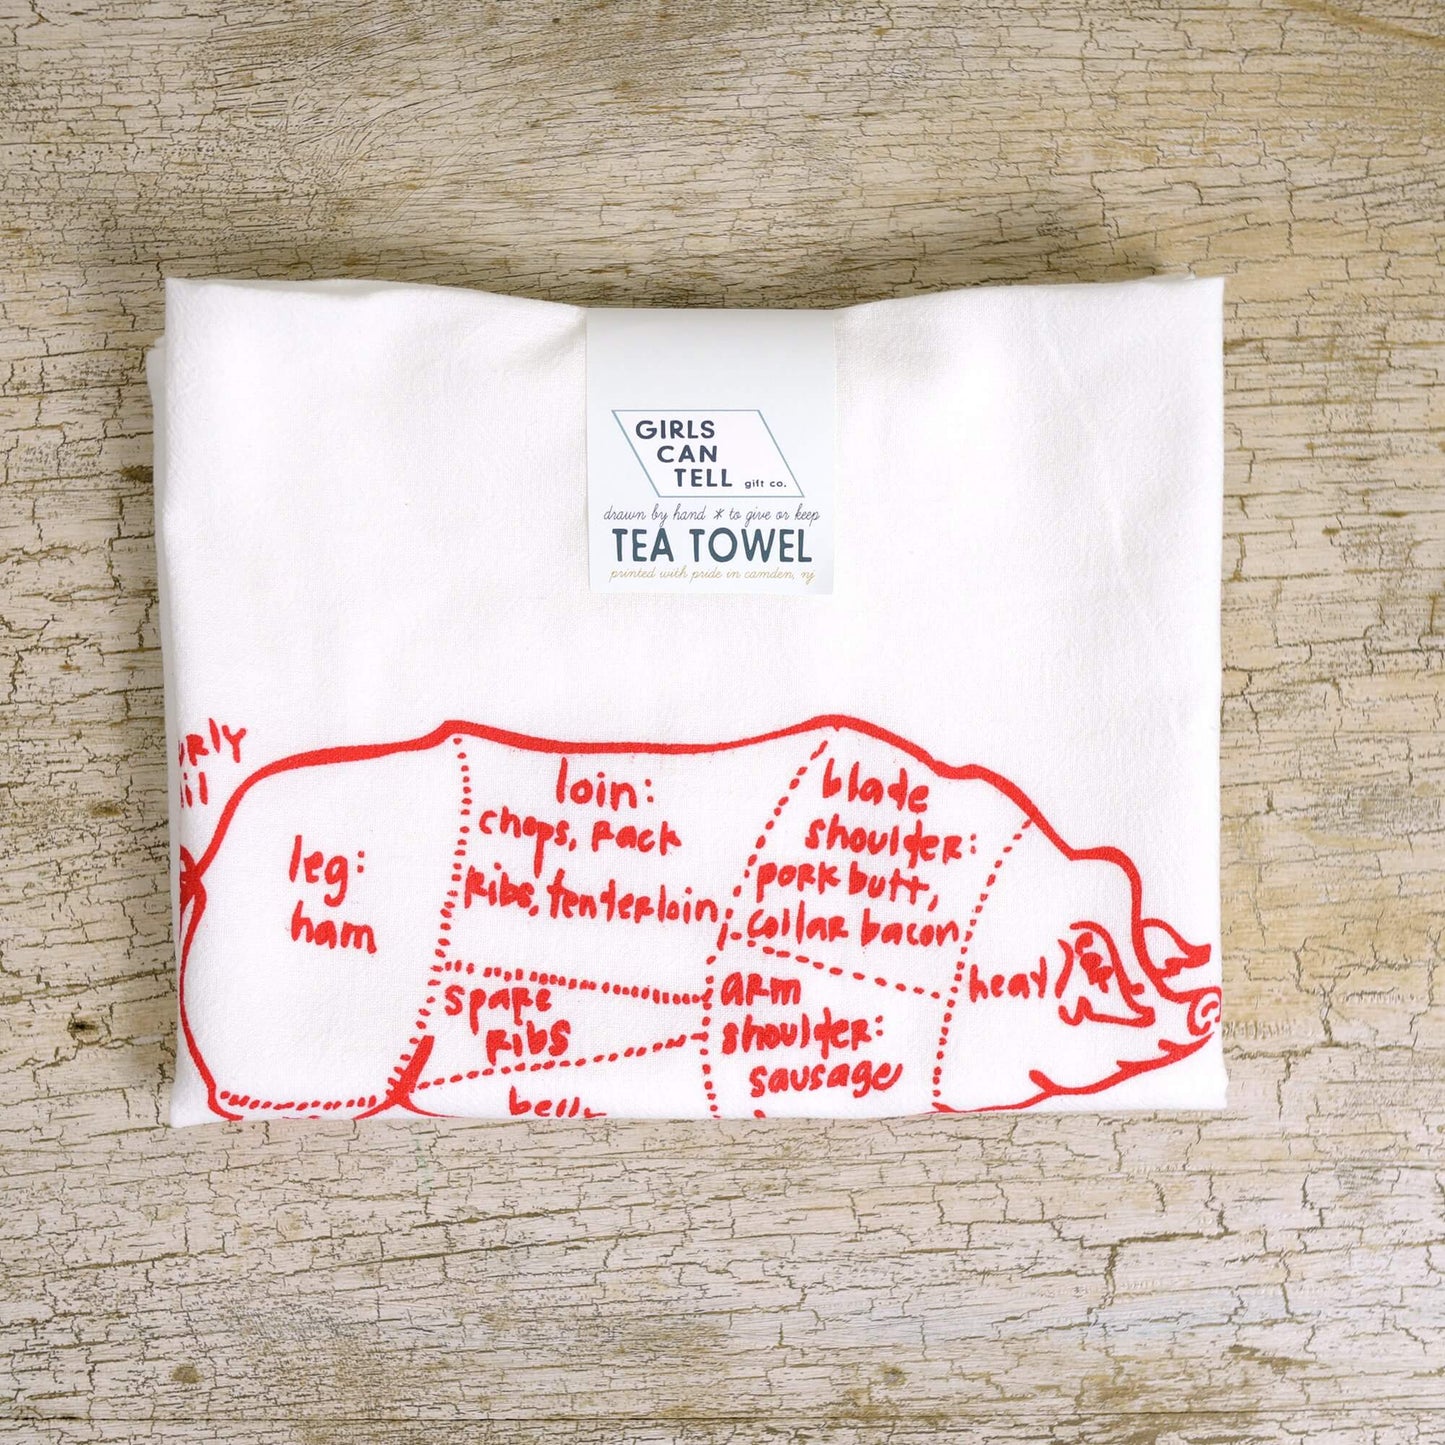 GIRLS
CAN
TELL gift co.
drawn by hand * to give or keep
TEA TOWEL
printed with pride in camden, nj
loin:
chops, rack
ribs, tenderloin
blade
shoulder:
pork butt,
collar bacon
leg:
ham
head
spare
ribs
arm
shoulder:
sausage
belly